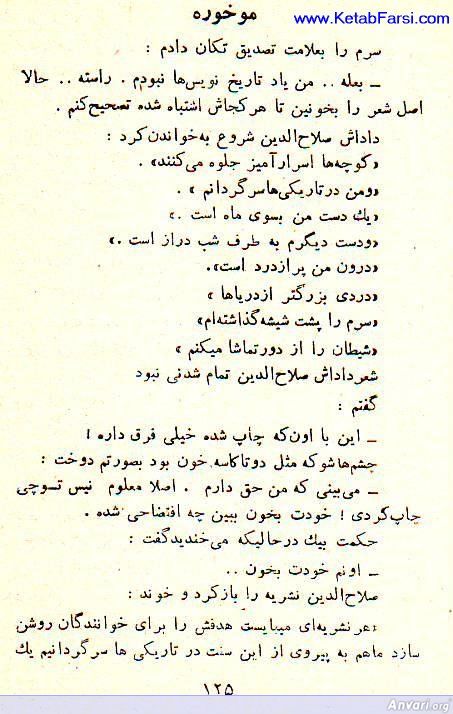 موخوره
www.KetabFarsi.com
سرم را بعلامت تصدیق تکان دادم :
ـ بعله .. من یاد تاریخ نویس‌ها نبودم . راسته .. حالا
اصل شعر را بخونین تا هرکجاش اشتباه شده تصحیح‌کنم .
داداش صلاح‌الدین شروع به‌خواندن‌کرد :
«کوچه‌ها اسرارآمیز جلوه می‌کنند» .
«ومن درتاریکی‌هاسرگردانم » .
«یك دست من بسوی ماه است .»
«ودست دیگرم به طرف شب دراز است .»
«درون من پرازدرد است».
«دردی بزرگتر ازدریاها »
«سرم را پشت شیشه‌گذاشته‌ام»
«شیطان را از دورتماشا میکنم »
شعرداداش صلاح‌الدین تمام شدنی نبود
گفتم :
ـ این با اون‌که چاپ شده خیلی فرق داره !
چشم‌هاشوکه مثل دوتاکاسه خون بود بصورتم دوخت :
ـ می‌بینی که من حق دارم . اصلا معلوم نیس تــوچی
چاپ‌کردی ! خودت بخون ببین چه افتضاحی شده .
حکمت بیك درحالیکه می‌خندیدگفت :
ـ اونم خودت بخون ..
صلاح‌الدین نشریه را بازکرد و خوند :
«هرنشریه‌ای میبایست هدفش را برای خوانندگان روشن
سازد ماهم به پیروی از این سنت در تاریکی ها سرگردانیم یك
۱۲۵
Anvari.org